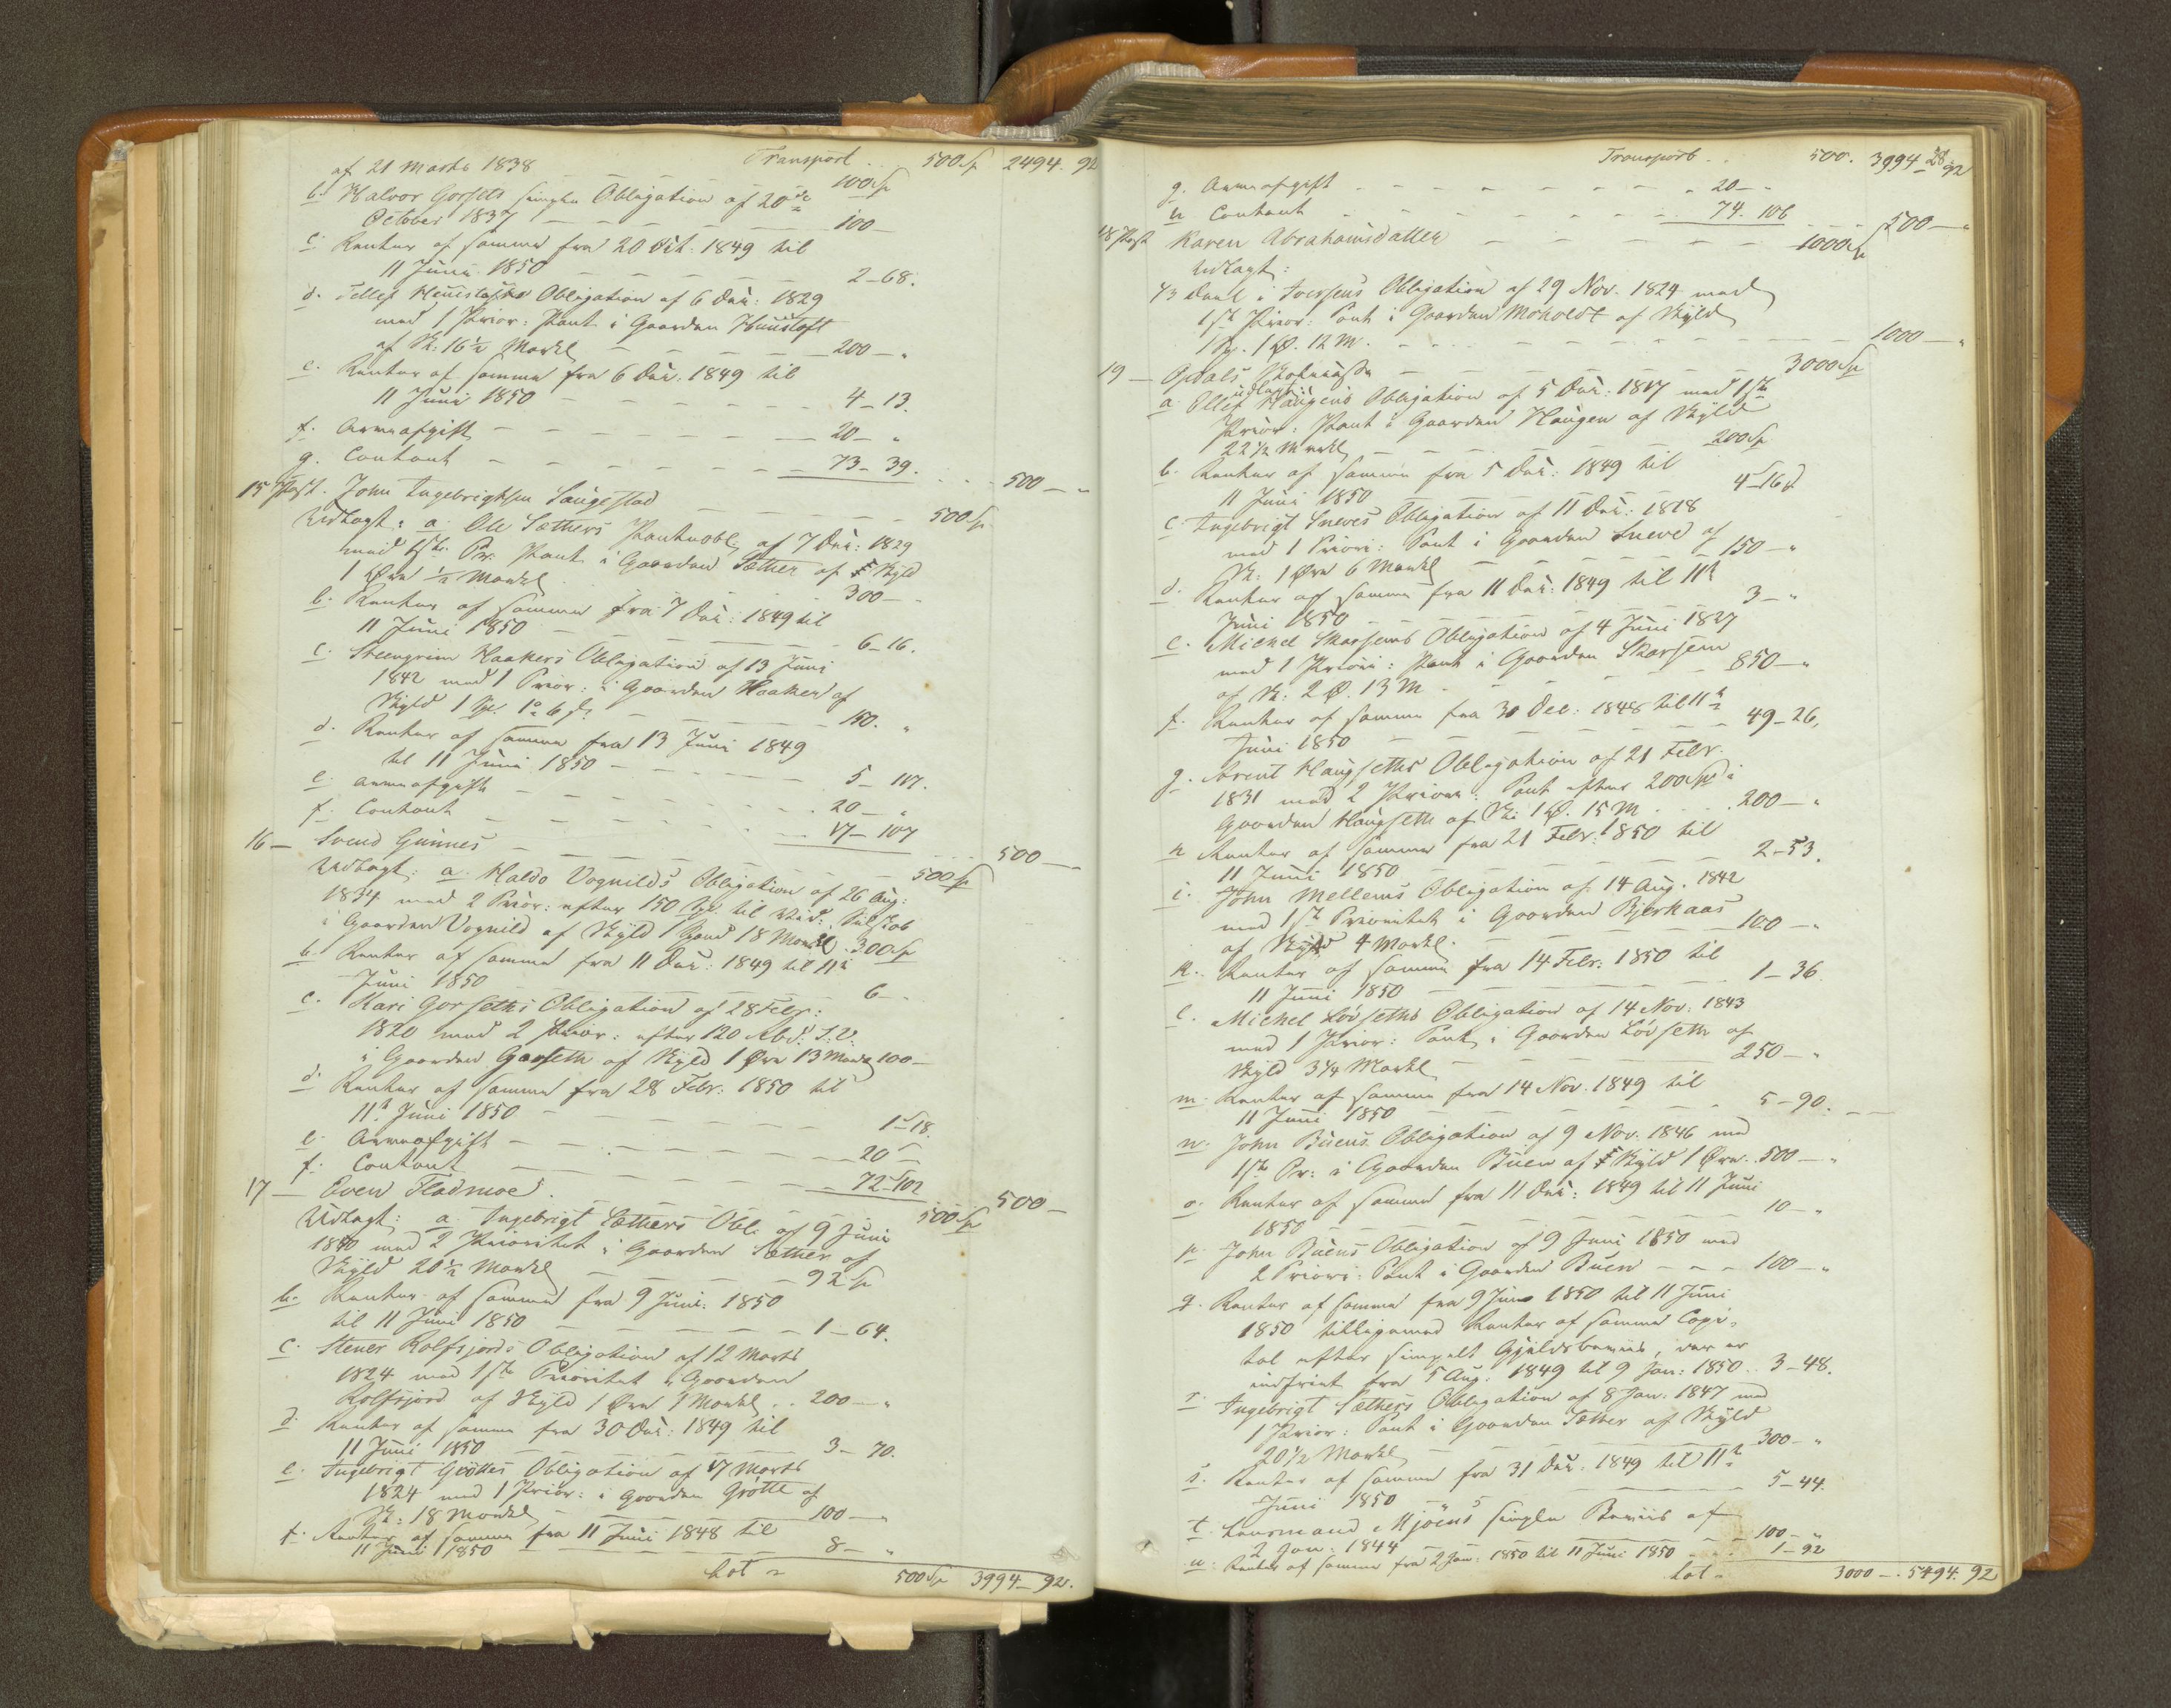 af 21 Marts 1838 Transport . . 500 Sp 2494. 92
b. Halvor Gorsets simple Obligation af 20de 100 Sp
October 1837 — — — — 100 —
c. Renter af samme fra 20 Oct. 1849 til
11 Juni 1850 — — — — 2 – 68.
d. Obligation af 6 Dec: 1829
med 1 Prior: Pant i Gaarden
af Sk: 16 1/2 Markl — — — 200 — „
e. Renter af samme fra 6 Dec: 1849 til
11 Juni 1850 — — — — 4 – 13.
f. Armeafgift — — — — 20 — „
g. Contant — — — — 73 – 39. . . . 500 — „
15 Post. John Ingebrigtsen Laugestad — — — — 500 Sp
Udlagt: a. Ole Sæthers Panteobl: af 7 Dec: 1829
med 1ste Pr. Pant i Gaarden Sæther af Skyld
1 Øre 1/2 Markl — — 300 — .
b. Renter af samme fra 7 Dec: 1849 til
11 Juni 1850 — — — — 6 – 16.
c. Steengrim Haakers Obligation af 13 Juni
1842 med 1 Prior: i Gaarden Haaker af
Skyld 1 — — — 150. „
d. Renter af samme fra 13 Juni 1849
til 11 Juni 1850 — — — — 5 – 117.
e. Armeafgift — — — — 20 — „
f. Contant — — — — 17 – 107 . . . 500 —
16 — Svend Gunnes — — — — 500 Sp
Udlagt: a. Haldo Vognilds Obligation af 26 Aug:
1834 med 2 Prior: efter 150 Sp. til
i Gaarden Vognild af Skyld 1 18 Markl . 300 Sp
b. Renter af samme fra 11 Dec: 1849 til 11te
Juni 1850 — — — — 6 — .
c. Kari Gorseths Obligation af 28 Febr:
1820 med 2 Prior: efter 120 Rbd: S.V.
i Gaarden Gorseth af Skyld 1 Øre 13 Mark 100 —
d. Renter af samme fra 28 Febr: 1850 til
11te Juni 1850 — — — — 1 – 18.
e. Armeafgift — — — — 20 —
f. Contant — — — — 72 – 102 . . . 500 —
17 — Even Fladmoe . — — — — 500 Sp
Udlagt: a. Ingebrigt Sæthers Obl. af 9 Juni
1840 med 2 Prioritet i Gaarden Sæther af
Skyld 20 1/2 Markl — — — — 92 Sp
b. Renter af samme fra 9 Juni: 1850
til 11 Juni 1850 — — — — 1 – 64.
c. Stener Rolfsjords Obligation af 12 Marts
1824 med 1ste Prioritet i Gaarden
Rolfsjord af Skyld 1 Øre 1 Markl . . 200 — „
d. Renter af samme fra 30 Dec: 1849 til
11 Juni 1850 — — — — 3 – 70.
e. Ingebrigt Grøttes Obligation af 17 Marts
1824 med 1 Prior: i Gaarden Grøtte af
Sk: 18 Markl — — — 100 — „
f. Renter af samme fra 11 Juni 1848 til
11 Juni 1850 — — — — 8 — „
Lat = 500 Sp 3994 – 92.
Transport . . 500. 3994 – 92
g. Armeafgift — — — — 20 — „
h. Contant — — — — 74. 106 . . . 500 — „
18 Post Karen Abrahamsdatter — — — — 1000 Sp
Udlagt:
Iversens Obligation af 29 Nov. 1824 med
1ste Prior: Pant i Gaarden Moholdt af Skyld
1 Sp. 1 Ø. 12 M. — — — — 1000 — „
19 — Opdals — — — — 3000 Sp
udlagt:
a. Ellef Haugens Obligation af 5 Dec: 1817 med 1ste
Prior: Pant i Gaarden Haugen af Skyld
22 1/2 Markl — — — — 200 Sp
b. Renter af samme fra 5 Dec: 1849 til
11 Juni 1850 — — — — 4 – 16 s
c. Ingebrigt Sneves Obligation af 11 Dec: 1818
med 1 Priori: Pant i Gaarden Sneve af
Sk: 1 Øre 6 Markl — — — 150 — „
d. Renter af samme fra 11 Dec: 1849 til 11te
Juni 1850 — — — — 3 — „
e. Michel Skarsems Obligation af 4 Juni 1827
med 1 Priori: Pant i Gaarden Skarsem
af Sk: 2 Ø. 13 M . — — — 850 — „
f. Renter af samme fra 30 Dec: 1848 til 11te
Juni 1850 — — — — 49 – 26.
g. Arent Haugseths Obligation af 21 Febr.
1831 med 2 Priori: Pant efter 200 Sp i
Gaarden Haugseth af Sk: 1 Ø. 15 M . . . . 200 — „
h Renter af samme fra 21 Febr: 1850 til
11 Juni 1850 — — — — 2 – 53.
i. John Mellems Obligation af 14 Aug. 1842
med 1ste Prioritet i Gaarden Bjerkaas
af Skyld 4 Markl. — — — 100 — „
k. Renter af samme fra 14 Febr: 1850 til
11 Juni 1850 — — — — 1 – 36.
l. Michel Løvseths Obligation af 14 Nov: 1843
med 1 Prior: Pant i Gaarden Løvseth af
Skyld 3 1/4 Markl — — — 250 — „
m. Renter af samme fra 14 Nov. 1849 til
11 Juni 1850 — — — — 5 – 90.
n. John Buens Obligation af 9 Nov. 1846 med
1ste Pr: i Gaarden Buen af Skyld 1 Øre . 500 — „
o. Renter af samme fra 11 Dec: 1849 til 11 Juni
1850 — — — — 10 — „
p. John Buens Obligation af 9 Juni 1850 med
2 Priori: Pant i Gaarden Buen — — — 100 — „
q. Renter af samme fra 9 Juni 1850 til 11 Juni
1850 tilligemed Renter af samme Capi-
tal efter simpelt Gjældsbeviis, der er
indfriet fra 5 Aug: 1849 til 9 Jan: 1850 . . 3 – 48.
r. Ingebrigt Sæthers Obligation af 8 Jan: 1847 med
1 Prior: Pant i Gaarden Sæther af Skyld
20 1/2 Markl — — — — 300 — „
s. Renter af samme fra 31 Dec: 1849 til 11te
Juni 1850 — — — — 5 – 44.
t. Lensmand Mjøens simple Beviis af
2 Jan: 1844 — — — — 100 — „
u. Renter af samme fra 2 Jan: 1850 til 11 Juni 1850 — . . 1 – 92
Lat = 3000 — . 5494. 92